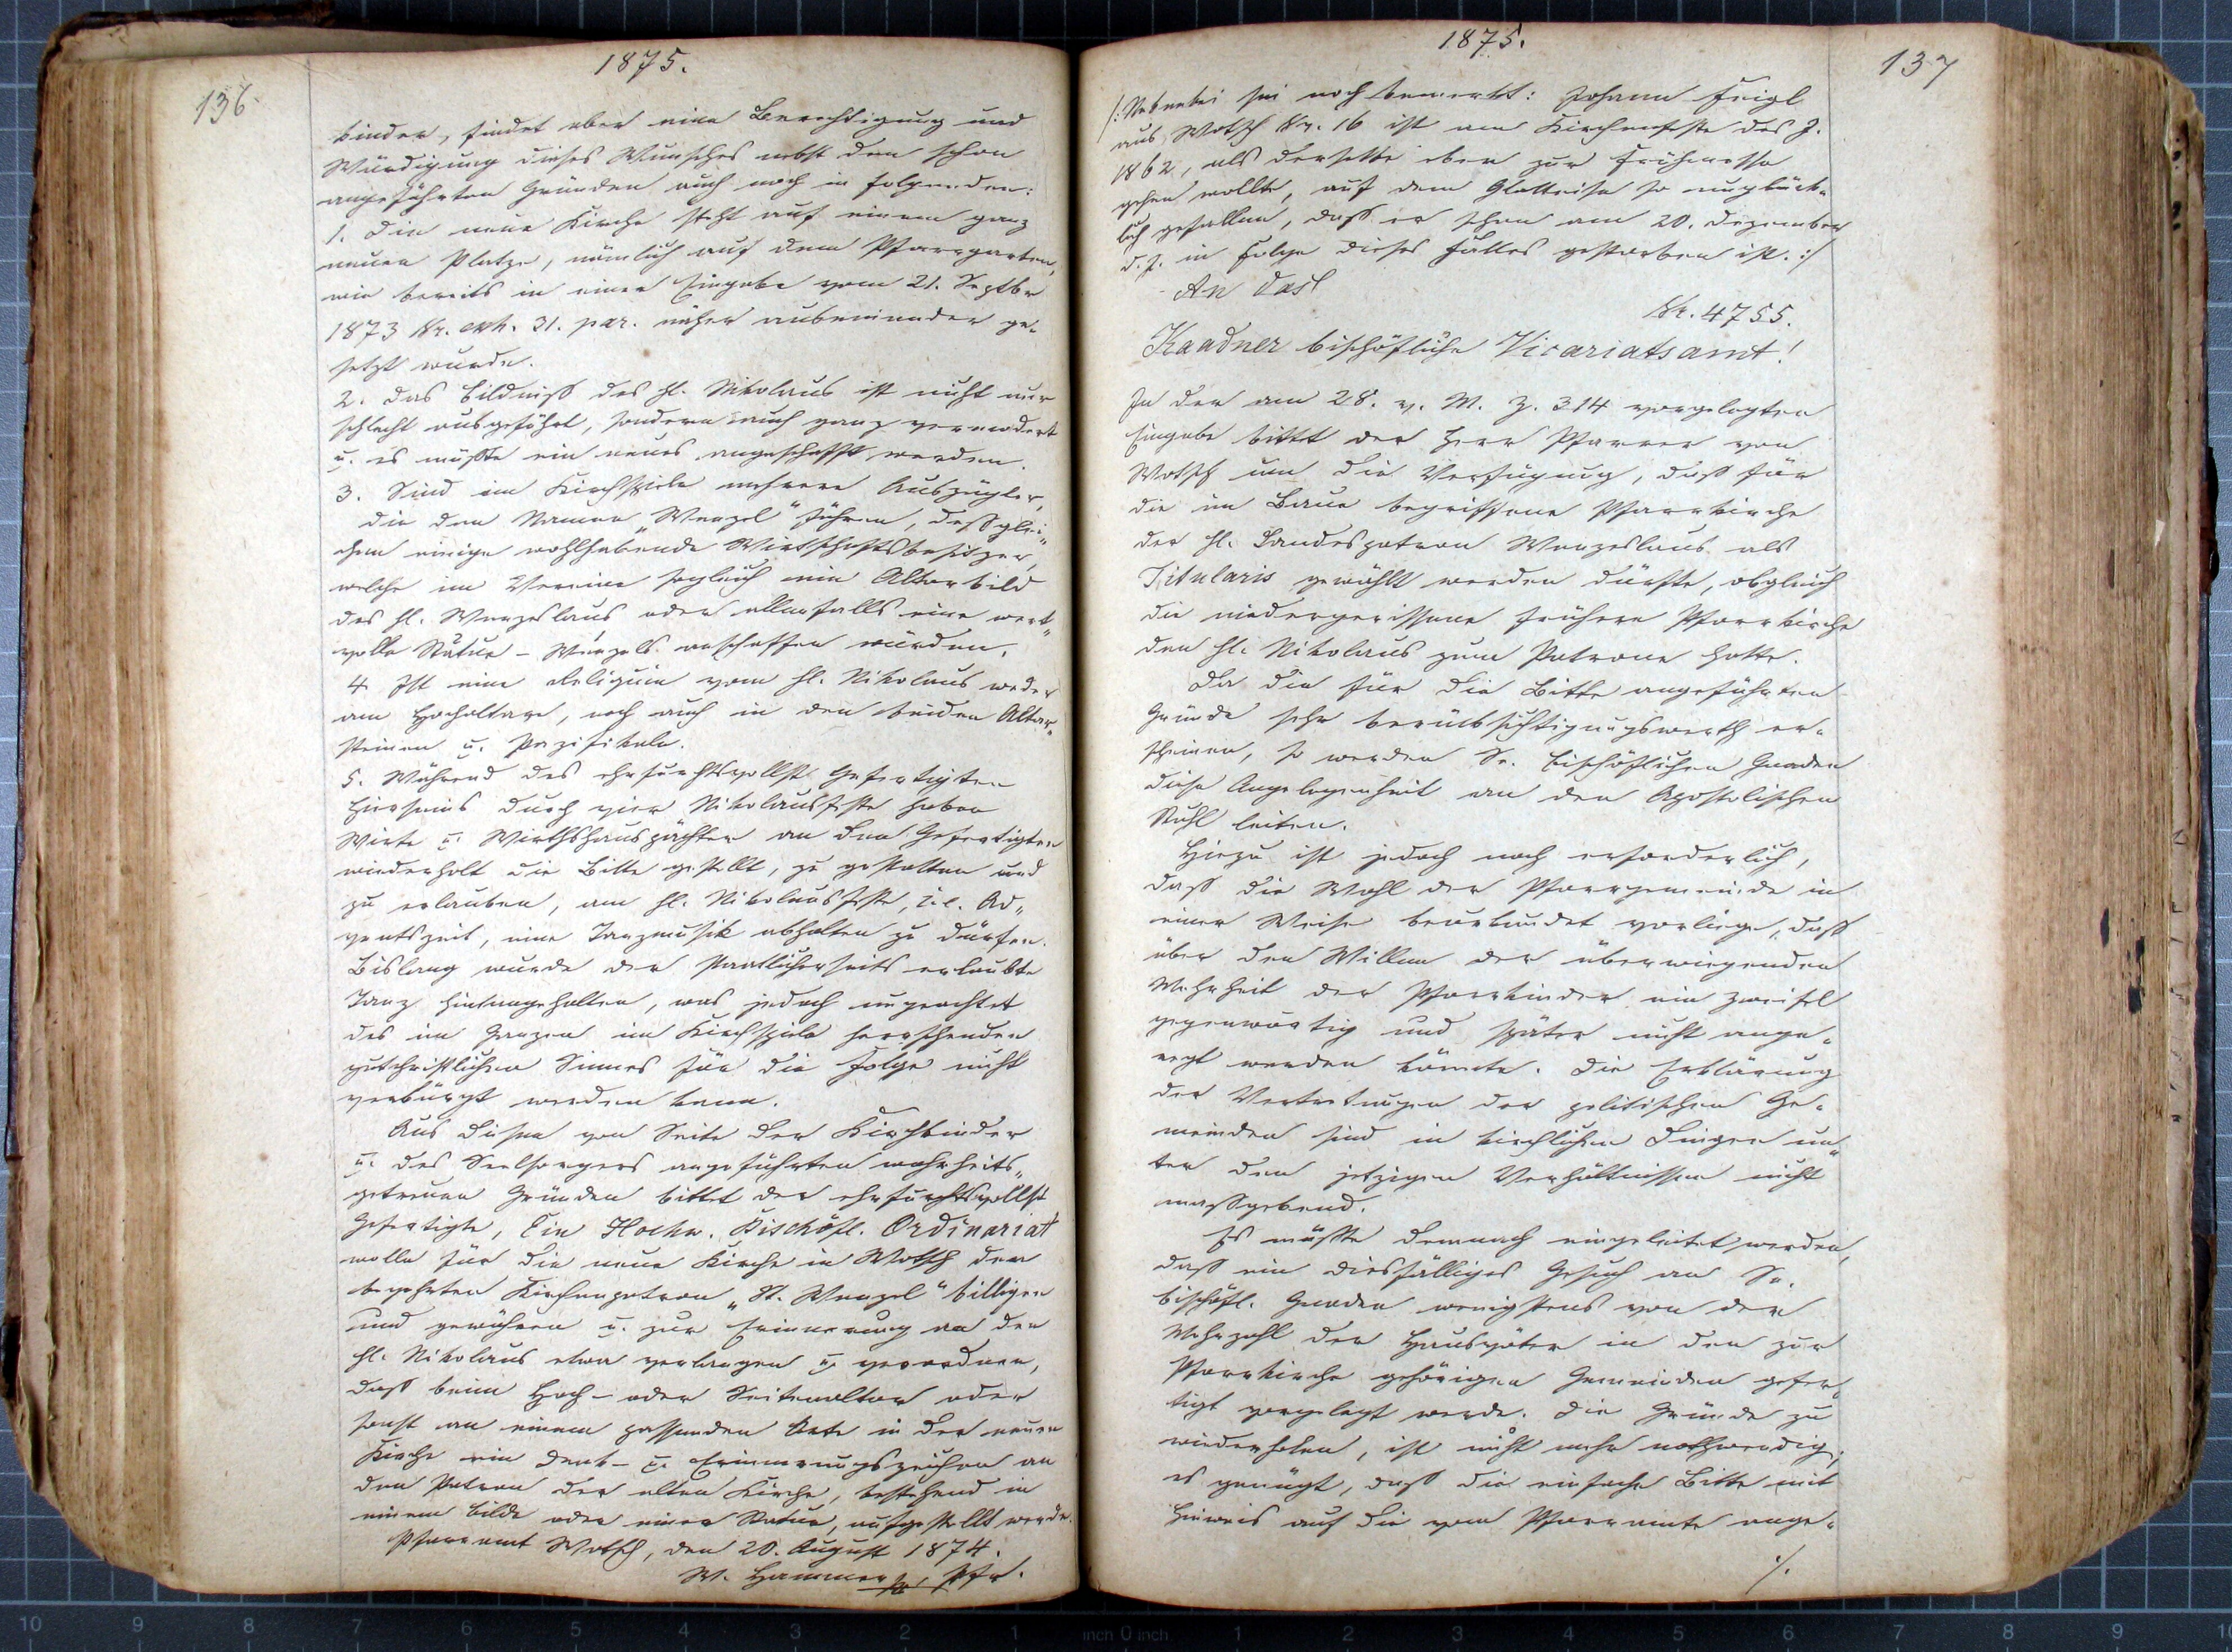 1875.
136.
kinder, findet aber eine Berechtigung und
Würdigung dieses Wunsches nebst den schon
angeführten Gründen auch noch in folgenden:
1. Die neue Kirche steht auf einem ganz
neuen Platze, nämlich auf dem Pfarrgarten,
wie bereits in einer Eingabe vom 21. Septbr
1873 Nr. exh. 31. par. näher auseinander ge-
setzt wurde.
2. Das Bildniß des hl. Nikolaus ist nicht nur
schlecht ausgeführt, sondern auch ganz vermodert
u. es müßte ein neues angeschafft werden.
3. Sind im Kirchspiele mehrere Auszügler,
die den Namen „Wenzel" führen, deßglei„
chen einige wohlhabende Wirtschaftsbesitzer,
welche im Vereine sogleich ein Altarbild
des hl. Wenzeslaus oder allenfalls eine wert„
volle Statue - Wenzels anschaffen würden.
4. Ist eine Reliquie vom hl. Nikolaus weder
am Hochaltare, noch auch in den beiden Altar„
steinen u. Pazifikale.
5. Während des ehrfurchtsvollst Gefertigten
Hierseins durch vier Nikolausfeste haben
Wirte u. Wirthshauspächter an den Gefertigten
wiederholt die Bitte gestellt, zu gestatten und
zu erlauben, am hl. Nikolausfeste, i.e. Ad„
ventszeit, eine Tanzmusik abhalten zu dürfen.
Bislang wurde der staatlicherseits erlaubte
Tanz hintangehalten, was jedoch ungeachtet
des im Ganzen im Kirchspiele herrschenden
gutchristlichen Sinnes für die Folge nicht
verbürgt werden kann.
Aus diesen von Seite der Kirchkinder
u. des Seelsorgers angeführten wahrheits„
getreuen Gründen bittet der ehrfurchtsvollst
Gefertigte, Ein Hochw. Bischöfl. Ordinariat
wolle für die neue Kirche in Wotsch den
begehrten Kirchenpatron „St. Wenzel" billigen
und gewähren u. zur Erinnerung an den
hl. Nikolaus etwa verlangen u. verordnen,
daß beim Hoch- oder Seitenaltar oder
sonst an einem passenden Orte in der neuen
Kirche ein Denk- u. Erinnerungszeichen an
den Patron der alten Kirche, bestehend in
einem Bilde oder einer Statue, aufgestellt werde.
Pfarramt Wotsch, den 20. August 1874.
W. Hammer, Pfr.
1875.
137
/: Nebenbei sei noch bemerkt: Johann Feigl
aus Wotsch Nr. 16 ist am Kirchenfeste des J.
1862, als derselbe eben zur Frühmesse
gehen wollte, auf dem Glatteise so unglück-
lich gefallen, daß er schon am 20. Dezember
d. J. in Folge dieses Falles gestorben ist. :/
An das
Nr. 4755.
Kaadner bischöfliche Vicariatsamt!
In der am 28. v. M. Z. 314 vorgelegten
Eingabe bittet der Herr Pfarrer von
Wotsch um die Verfügung, daß für
die im Baue begriffene Pfarrkirche
der hl. Landespatron Wenzeslaus als
Titularis gewählt werden dürfte, obgleich
die niedergerissene frühere Pfarrkirche
den hl. Nikolaus zum Patrone hatte.
Da die für die Bitte angeführten
Gründe sehr berücksichtigungswerth er-
scheinen, so werden Se. bischöflichen Gnaden
diese Angelegenheit an den Apostolischen
Stuhl leiten.
Hiezu ist jedoch noch erforderlich,
daß die Wahl der Pfarrgemeinde in
einer Weise beurkundet vorliege, daß
über den Willen der überwiegenden
Mehrheit der Pfarrkinder ein Zweifel
gegenwärtig und später nicht ange-
regt werden könnte. Die Erklärung
der Vertretungen der politischen Ge-
meinden sind in kirchlichen Dingen un„
ter den jetzigen Verhältnissen nicht
maßgebend.
Es müßte demnach eingeleitet werden,
daß ein diesfälliges Gesuch an Se.
bischöfl. Gnaden wenigstens von der
Mehrzahl der Hausväter in den zur
Pfarrkirche gehörigen Gemeinden gefer„
tigt vorgelegt werde. Die Gründe zu
wiederholen, ist nicht mehr nothwendig;
es genügt, daß die einfache Bitte mit
Hinweis auf die vom Pfarramte ange-
./.